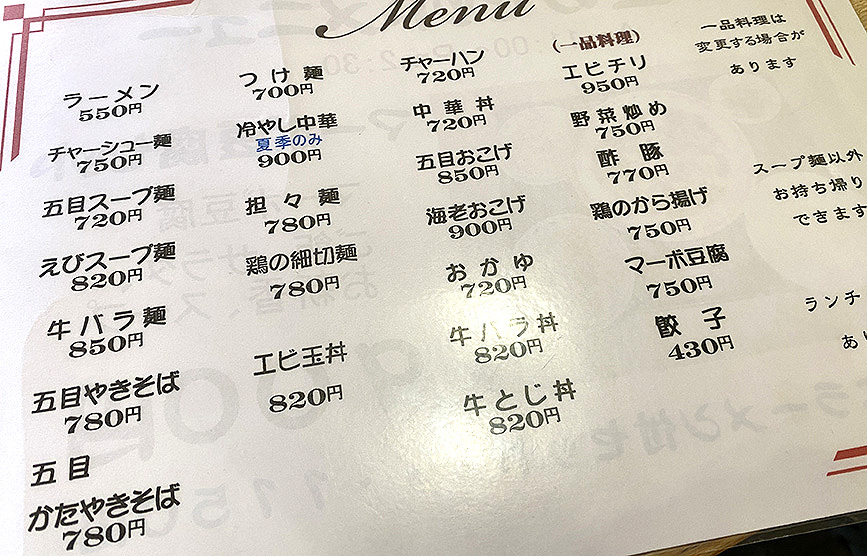 Menu
ラーメン
550円
チャーシュー麺
750円
五目スープ麺
720円
えびスープ麺
820円
牛バラ麺
850円
五目やきそば
780円
五目
かたやきそば
780円
つけ麺
700円
冷やし中華
夏季のみ
900円
担々麺
780円
鶏の細切麺
780円
エビ玉丼
820円
チャーハン
720円
中華丼
720円
五目おこげ
850円
海老おこげ
900円
おかゆ
720円
牛バラ丼
820円
牛とじ丼
820円
(一品料理)
エビチリ
950円
野菜炒め
750円
酢豚
770円
鶏のから揚げ
750円
マーボ豆腐
750円
餃子
430円
一品料理は
変更する場合が
あります
スープ麺以外
お持ち帰り
できます
ランチ
あり